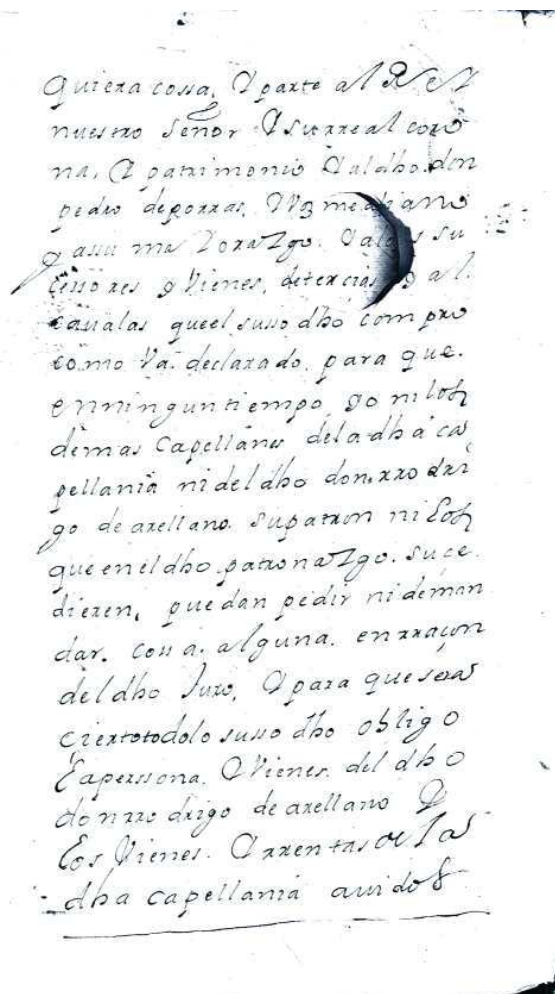 quiera cossa, y parte al Rey
nuestro señor y su rreal coro
na, y patrimonio y al dho don
pedro de porras, y medrano
y a su maiorazgo. y a los su
cessores y vienes, de tercias y al
cavalas que el susso dho compro
como va declarado para que
en ningun tiempo yo ni los
demas capellanes de la dha ca
pellania ni del dho don rrodri
go de arellano su patron ni los
que en el dho patronazgo suce
dieren, puedan pedir ni deman
dar. cossa alguna. en rraçon
del dho juro, y para que sera
cierto todo lo susso dho obligo
la perssona. y vienes. del dho
don rrodrigo de arellano y
los vienes. y rrentas de la
dha capellania avidos